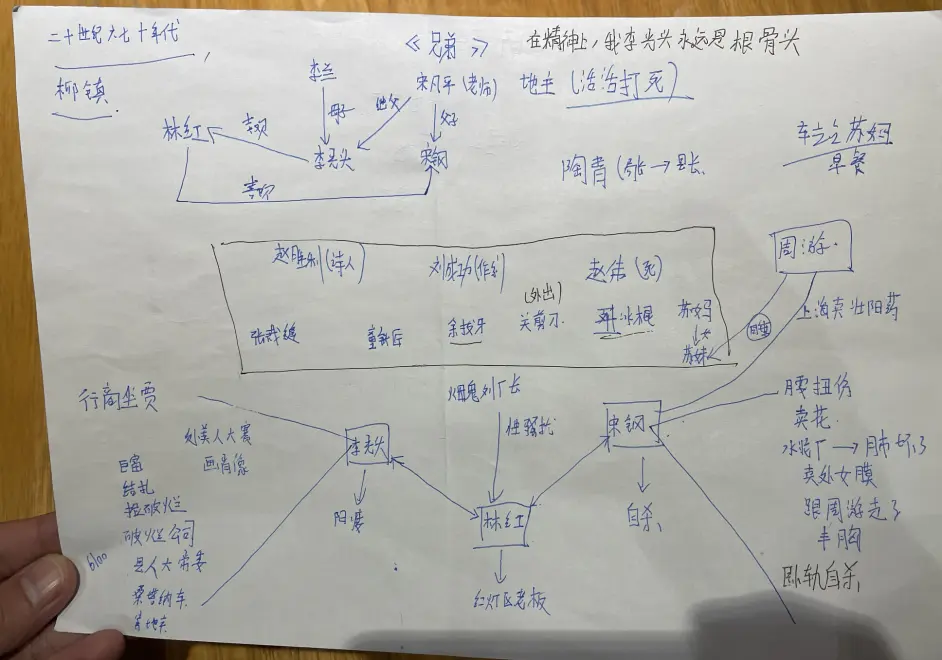 二十世纪六七十年代
《兄弟》
在精神上，我李光头永远是根骨头
柳镇
李兰
宋凡平（老师）
地主（活活打死）
林红
喜欢
母子
继父
父子
李光头
宋钢
喜欢
陶青（
→县长
苏妈
早餐
赵胜利（诗人）
刘成功（作家）
赵伟（死）
（外出）
张裁缝
童铁匠
余拔牙
关剪刀
冰棍
苏妈
↓女
苏妹
周游
睡
上海卖壮阳药
行商坐贾
烟鬼刘厂长
性骚扰
处美人大赛
画肖像
李光头
宋钢
林红
结扎
捡破烂
破烂公司
县人大常委
桑塔纳车
6100
阳痿
自杀
红灯区老板
腰扭伤
卖花
水泥厂→肺坏了
卖处女膜
跟周游走了
丰胸
卧轨自杀